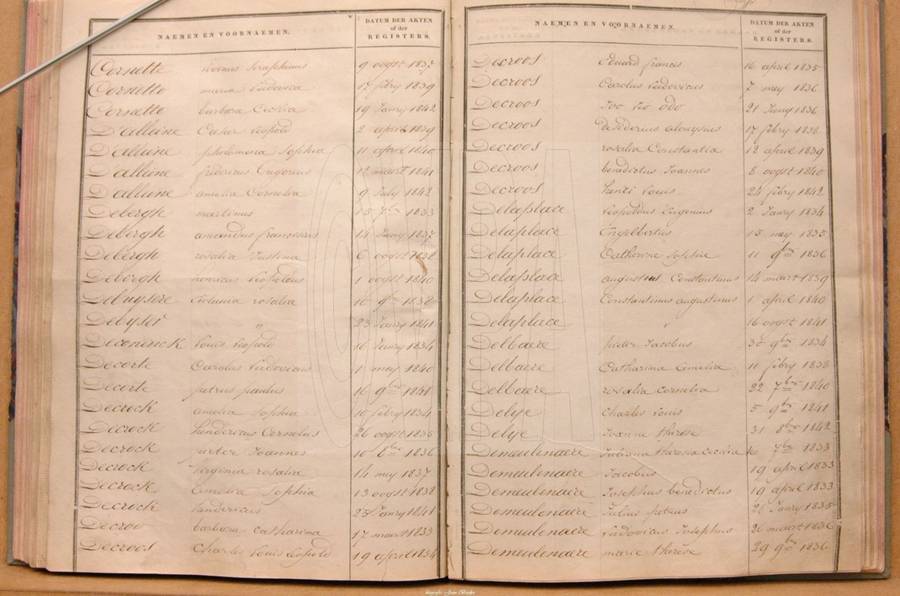 NAEMEN EN VOORNAEMEN. DATUM DER AKTEN of der REGISTERS.
Cornette Seraphinus 9 oogst 1837
Cornette maria Ludovica 17 febry 1839
Cornette barbara Cecilia 19 Janry 1842
D'alleine Cesar Leopold 2 april 1839
D'alleine philomena Sophia 11 april 1840
D'alleine 1 maart 1841
D'alleine amelia Cornelia 9 July 1842
Debergh martinus 1833
Debergh amandus franciscus 14 1835
Debergh rosalia Justina 6 oogst 1838
Debergh Leopoldus 1 oogst 1840
Debuysere rosalia 16 9bre 1838
Debyser " 23 Janry 1841
Deceninck Louis Leopold 16 Janry 1834
Decorte Carolus Ludovicus 1 may 1840
Decorte petrus paulus 16 9bre 1841
Decrock amelia Sophia 10 febry 1834
Decrock hendericus Cornelius 26 oogst 1835
Decrock pieter Joannes 10 8bre 1836
Decrock virginia rosalia 14 may 1837
Decrock Sophia 13 oogst 1838
Decrock 27 Janry 1841
Decroo barbara catharina 17 maart 1833
Decroos Charles Louis Leopold 19 april 1834
NAEMEN EN VOORNAEMEN. DATUM DER AKTEN of der REGISTERS.
Decroos Eduard francis 16 april 1835
Decroos Carolus Ludovicus 7 may 1836
Decroos 21 Janry 1836
Decroos Desiderius Aloysius 17 febry 1838
Decroos rosalia Constantia 12 april 1839
Decroos benedictus Joannes 8 oogst 1840
Decroos henri Louis 24 febry 1842
Delaplace Leopoldus Eugenius 2 Janry 1834
Delaplace Engelbertus 15 may 1835
Delaplace Catherine Sophie 11 9bre 1836
Delaplace augustus Constantinus 14 maart 1839
Delaplace Constantinus augustinus 1 april 1840
Delaplace " 16 oogst 1841
Delbaere pieter Jacobus 30 9bre 1834
Delbaere Catharina Amelia 10 febry 1838
Delbaere rosalia Cornelia 22 7bre 1840
Delye Charles Louis 5 9bre 1841
Delye Joanne thérèse 31 8bre 1842
Demeulenaere Juliana theresia Cecilia 7bre 1833
Demeulenaere Jacobus 19 april 1833
Demeulenaere Josephus benedictus 19 april 1833
Demeulenaere Julius petrus 26 Janry 1835
Demeulenaere Ludovicus Josephus 26 maart 1836
Demeulenaere marie thérèse 29 9bre 1836